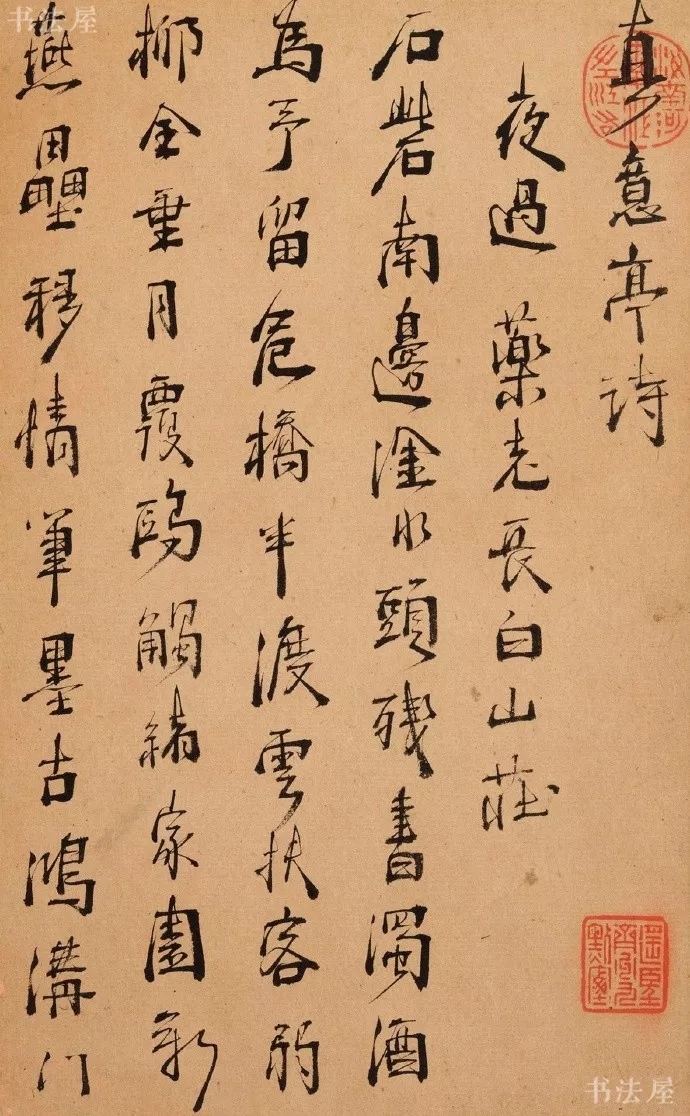 真意亭诗
夜過 藥老長白山莊
石砦南邊淦水頭殘書濁酒
為予留危橋半渡雲扶客弱
柳全垂月覆鷗觸緒家園新
燕壘移情筆墨古鴻溝门
书法屋
书法屋